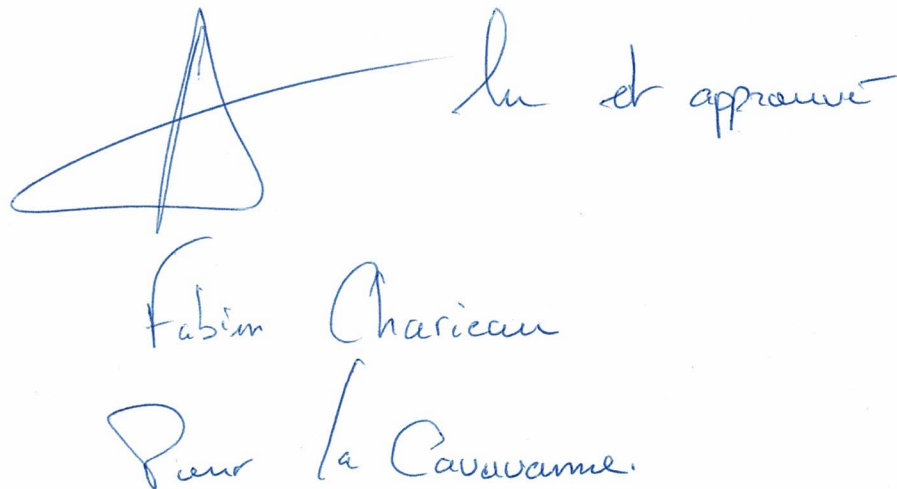 lu et approuvé
Fabien Charieau
Pour la Caravanne.